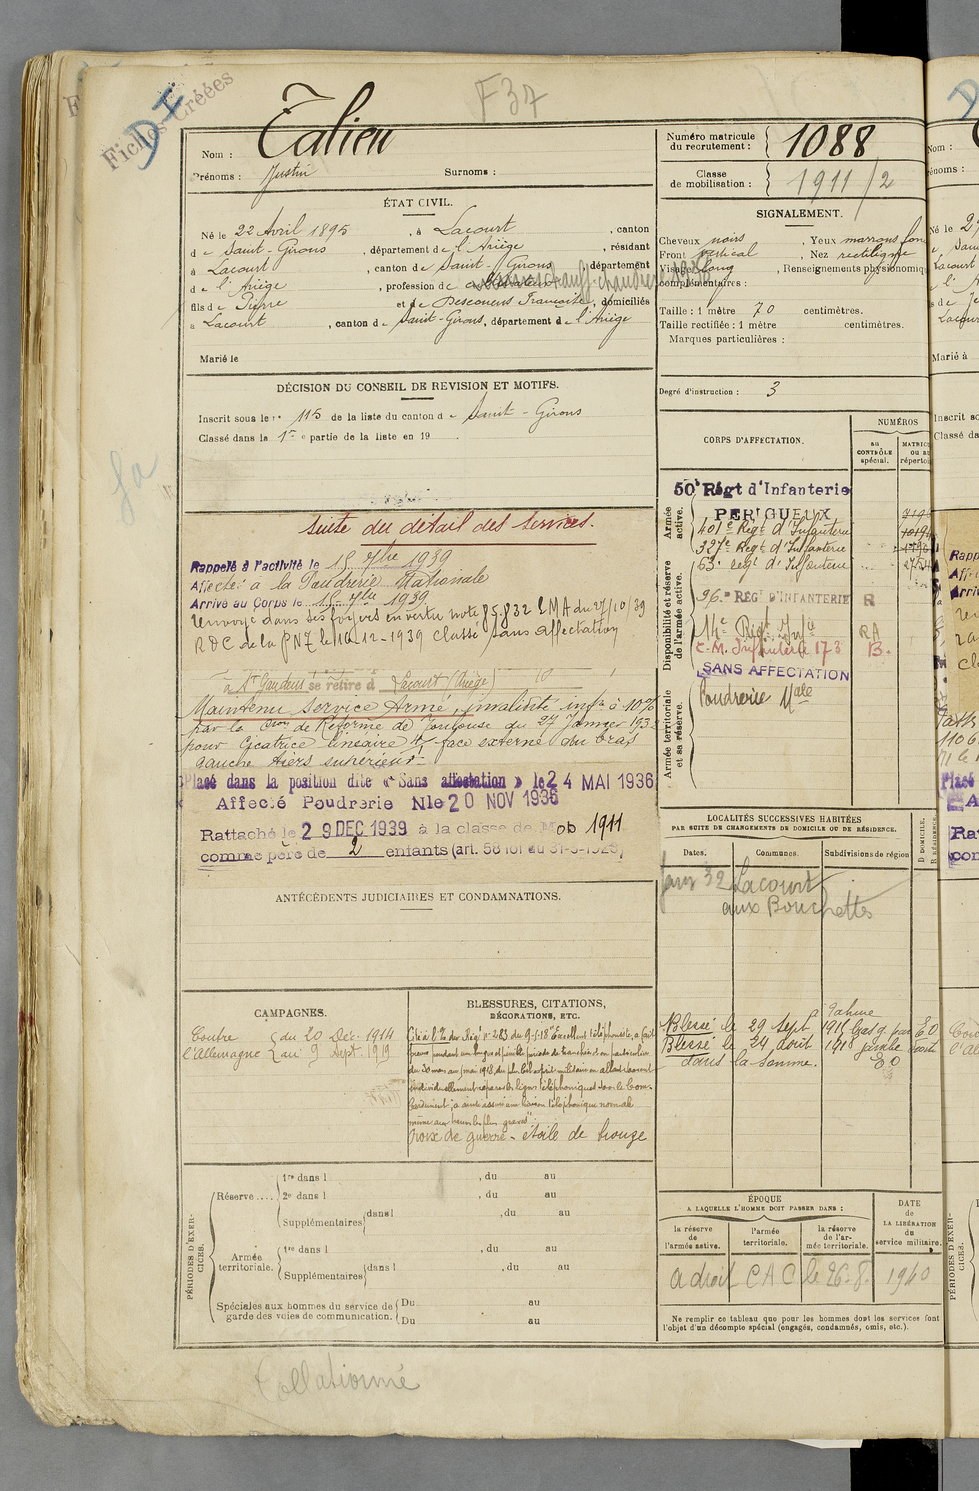 Fiches créées
DI
F37
Nom : Talieu
Prénoms : Justin
Surnoms :
Numéro matricule du recrutement : 1088
Classe de mobilisation : 1911/2
ÉTAT CIVIL.
Né le 22 Avril 1895, à Lacourt, canton
de Saint-Girons, département de l'Ariège, résidant
à Lacourt, canton de Saint-Girons, département
de l'Ariège, profession de
fils de Pierre et de Descouens Françoise, domiciliés
à Lacourt, canton de Saint-Girons, département de l'Ariège
Marié le
SIGNALEMENT.
Cheveux noirs, Yeux marrons
Front vertical, Nez rectiligne
Visage long, Renseignements physionomiq
complémentaires :
Taille : 1 mètre 70 centimètres.
Taille rectifiée : 1 mètre centimètres.
Marques particulières :
Degré d'instruction : 3
DÉCISION DU CONSEIL DE REVISION ET MOTIFS.
Inscrit sous le n° 115 de la liste du canton de Saint-Girons
Classé dans la 1re partie de la liste en 19
suite du détail des services.
Rappelé à l'activité le 15 7bre 1939
Affecté à la Poudrerie Nationale
Arrivé au Corps le 15 7bre 1939
renvoyé dans ses foyers en vertu note 85.832 EMA du 27/10/39
RDC de la PNZ le 10-12-1939 classé sans affectation
à St Gaudens se retire à Lacourt (Ariège)
Maintenu Service Armé, invalidité infre à 10%
par la Cson de Réforme de Toulouse du 27 Janvier 1932
pour Cicatrice linéaire face externe du bras
gauche tiers supérieur
Placé dans la position dite « Sans affectation » le 24 MAI 1936
Affecté Poudrerie Nle 20 NOV 1936
Rattaché le 29 DEC 1939 à la classe de Mob 1911
comme père de 2 enfants (art. 58 loi du 31-3-1928)
CORPS D'AFFECTATION.
NUMÉROS
au CONTRÔLE spécial.
MATRIC ou au répertoi
Armée active.
50e Régt d'Infanterie
PERIGUEUX
401e Régt d'Infanterie
327e Régt d'Infanterie
63e Régt d'Infanterie
Disponibilité et réserve de l'armée active.
96e REGt D'INFANTERIE R
14e Régt Infie RA
C.M. Infanterie 173 B.
SANS AFFECTATION
Armée territoriale et sa réserve.
Poudrerie Nale
LOCALITÉS SUCCESSIVES HABITÉES
PAR SUITE DE CHANGEMENTS DE DOMICILE OU DE RÉSIDENCE.
Dates.
Communes.
Subdivisions de région
D DOMICILE.
R RÉSIDENCE
Janv 32 Lacourt
aux Bouchettes
ANTÉCÉDENTS JUDICIAIRES ET CONDAMNATIONS.
CAMPAGNES.
Contre l'Allemagne
du 20 Déc. 1914
au 9 Sept. 1919
BLESSURES, CITATIONS, DÉCORATIONS, ETC.
Cité à l'O. du Rég. n° 283 du 9-6-18 "Excellent téléphoniste, a fait
preuve pendant une longue et pénible période de tranchées et en particulier
du 30 mars au mai 1918 du plus bel esprit militaire en allant souvent
individuellement réparer les lignes téléphoniques sous le bom-
bardement, a ainsi assuré une liaison téléphonique normale
même aux heures les plus graves".
Croix de guerre - étoile de bronze
Blessé le 29 Sept 1915
Blessé le 24 Août 1918 jambe
dans la Somme.
PÉRIODES D'EXERCICES.
Réserve....
1re dans l , du au
2e dans l , du au
Supplémentaires dans l , du au
Armée territoriale.
1re dans l , du au
Supplémentaires dans l , du au
Spéciales aux hommes du service de garde des voies de communication.
Du au
Du au
ÉPOQUE
A LAQUELLE L'HOMME DOIT PASSER DANS :
la réserve de l'armée active.
l'armée territoriale.
la réserve de l'armée territoriale.
DATE de LA LIBÉRATION du service militaire.
a droit CAC le 26.8. 1940
Ne remplir ce tableau que pour les hommes dont les services font
l'objet d'un décompte spécial (engagés, condamnés, omis, etc.).
Collationné